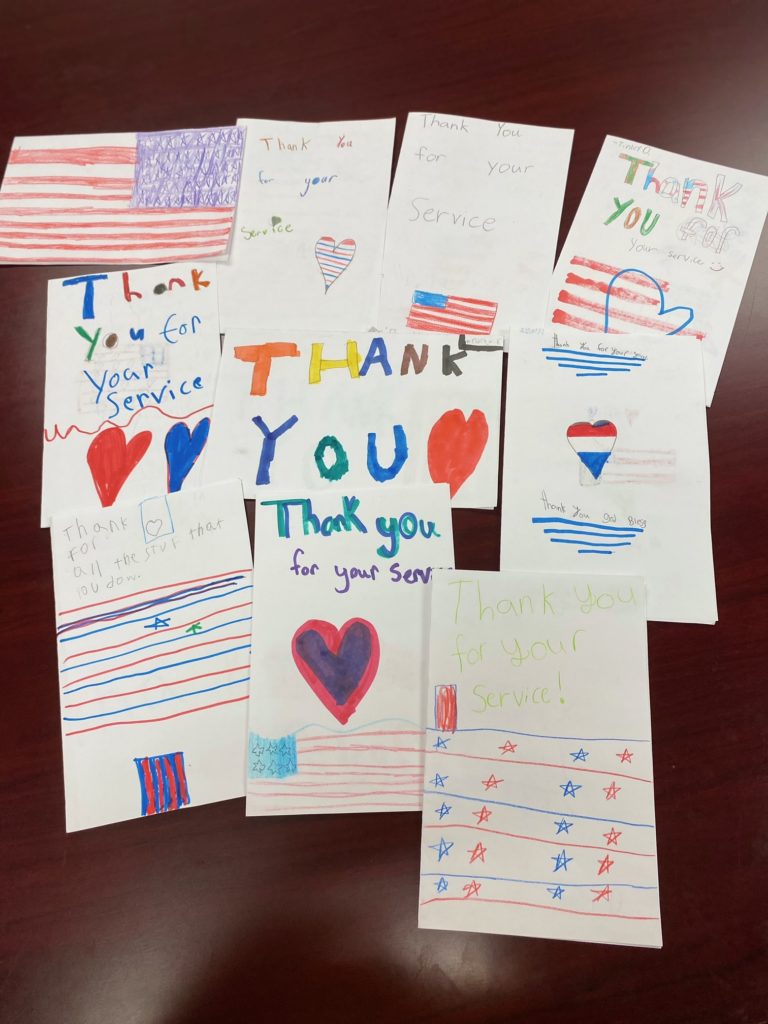 Thank You
for your
Service
Thank You
for your
Service
Thank
YOU for
Your service
Thank
You for
Your
Service
THANK
YOU
Thank You for your
Thank You god Bless
Thank
For
all the stuf that
you don.
Thank you
for your Servi
Thank You
for your
Service!